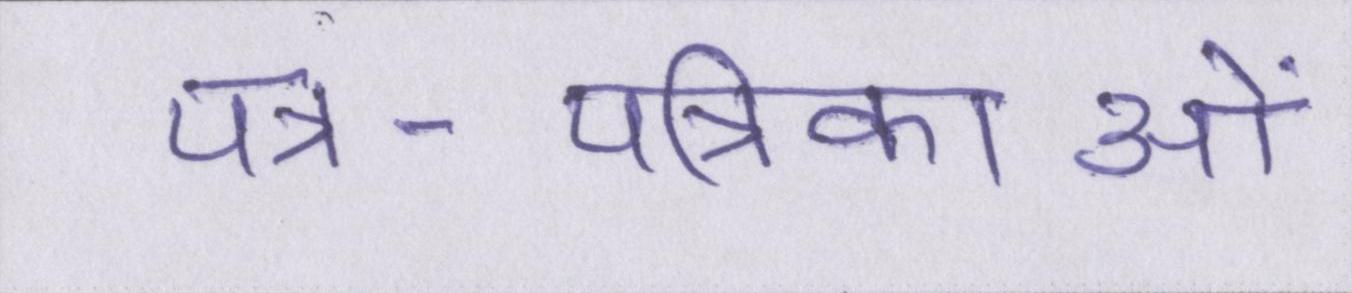 पत्र - पत्रिकाओं